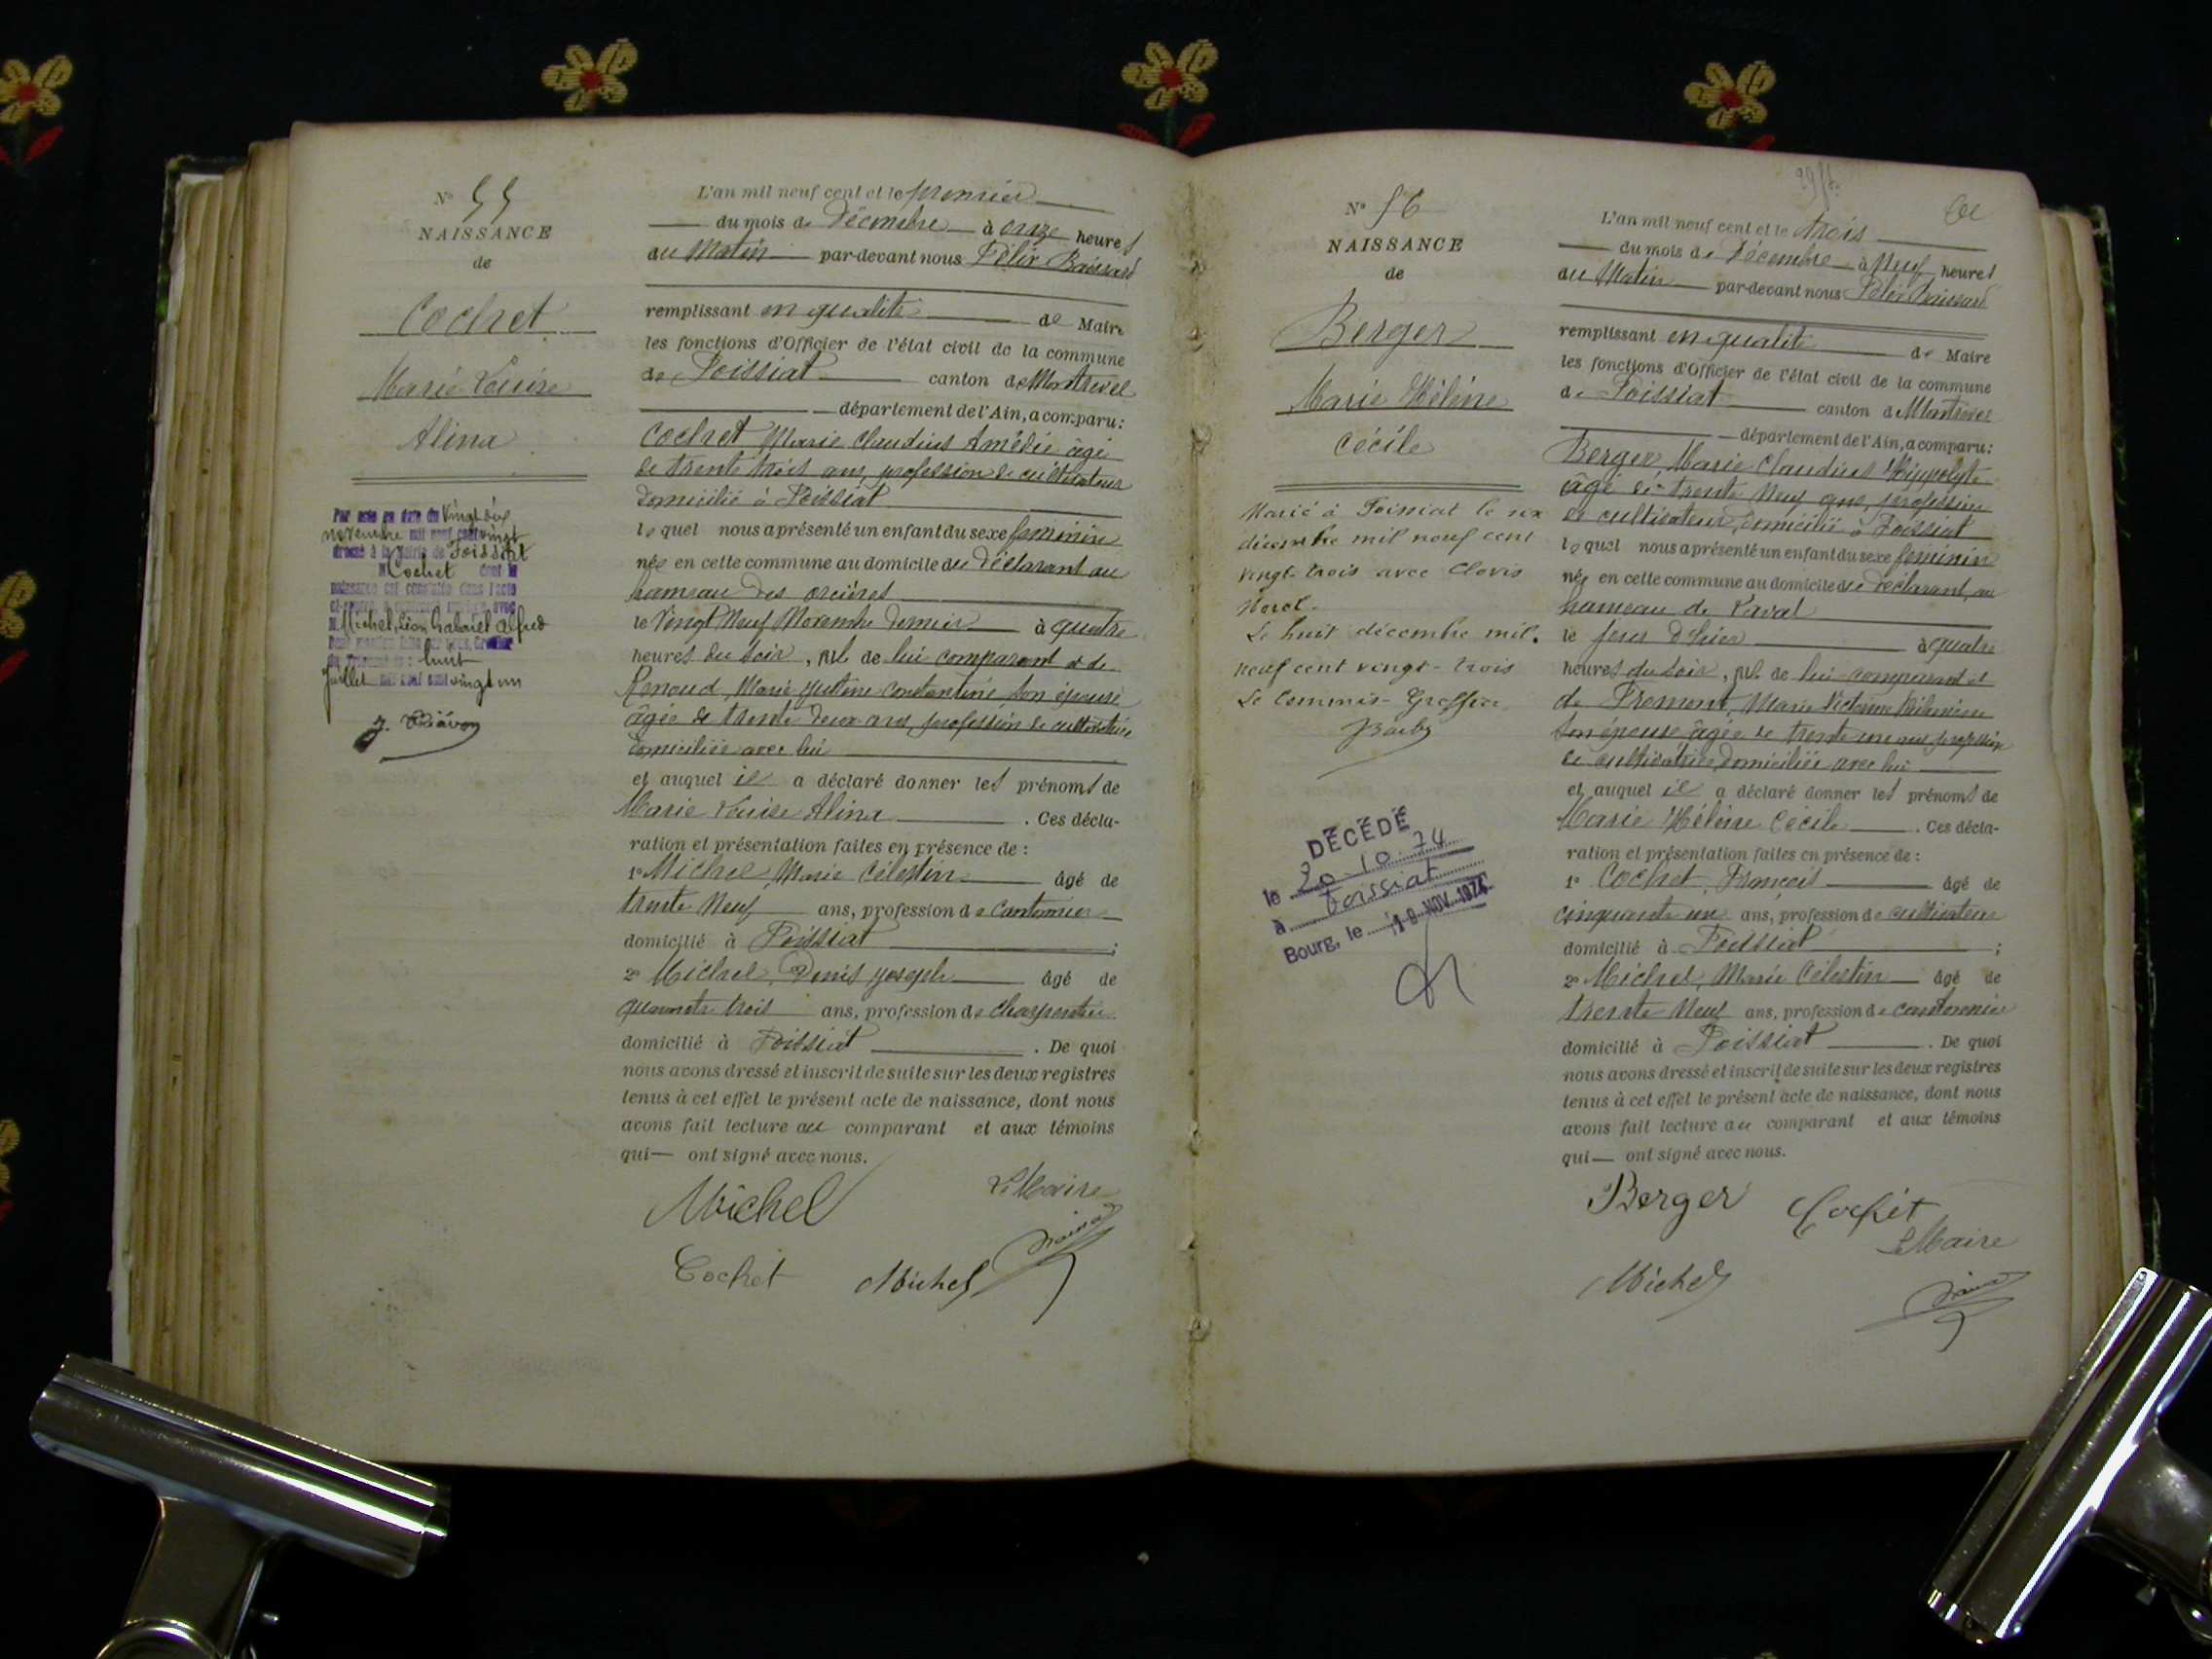 N° 55
NAISSANCE
de
Cochet
Marie Louise
Alina
Par acte en date du Vingt six
novembre mil neuf cent vingt
dressé à la Mairie de Foissiat
Cochet dont la
naissance est constatée dans l'acte
avec
M Michel, Léon Gabriel Alfred
huit
Juillet mil neuf cent vingt un
L'an mil neuf cent et le premier
du mois de Décembre à onze heures
du Matin par-devant nous Félix
remplissant en qualité de Maire
les fonctions d'Officier de l'état civil de la commune
de Foissiat canton de Montrevel
département de l'Ain, a comparu:
Cochet Marie Claudius Amédée âgé
de trente trois ans, profession de cultivateur
domicilié à Foissiat
lequel nous a présenté un enfant du sexe feminin
née en cette commune au domicile du déclarant au
hameau des orcières
le Vingt Neuf Novembre dernier à quatre
heures du soir, fille de lui comparant et de
Renoud, Marie Justine Constantine son épouse
âgée de trente deux ans, profession de cultivatrice
domiciliée avec lui
et auquel il a déclaré donner les prénoms de
Marie Louise Alina. Ces décla-
ration et présentation faites en présence de :
1° Michel Marie Célestin âgé de
trente Neuf ans, profession de cantonnier
domicilié à Foissiat ;
2° Michel, Denis Joseph âgé de
quarante trois ans, profession de charpentier
domicilié à Foissiat. De quoi
nous avons dressé et inscrit de suite sur les deux registres
tenus à cet effet le présent acte de naissance, dont nous
avons fait lecture au comparant et aux témoins
qui — ont signé avec nous.
Michel
Le Maire
Cochet Michel
N° 56
NAISSANCE
de
Berger
Marie Hélène
Cécile
Marié à Foissiat le six
décembre mil neuf cent
vingt-trois avec Clovis
Morel.
Le huit décembre mil.
neuf cent vingt-trois
Le Commis-Greffier
DÉCÉDÉ
le 20.10.74
à Foissiat
Bourg, le 18 NOV. 1974
L'an mil neuf cent et le trois
du mois de Décembre à Neuf heures
du Matin par-devant nous Félix
remplissant en qualité de Maire
les fonctions d'Officier de l'état civil de la commune
de Foissiat canton de Montrevel
département de l'Ain, a comparu:
Berger, Marie Claudius Hippolyte
âgé de trente Neuf ans, profession
de cultivateur, domicilié à Foissiat
lequel nous a présenté un enfant du sexe feminin
née en cette commune au domicile du déclarant, au
hameau de Laval
le jour d'hier à quatre
heures du soir, fille de lui comparant et
de Fromont, Marie Victorine Philomène
son épouse âgée de trente un ans, profession
de cultivatrice domiciliée avec lui
et auquel il a déclaré donner les prénoms de
Marie Hélène Cécile. Ces décla-
ration et présentation faites en présence de :
1° Cochet, François âgé de
cinquante un ans, profession de cultivateur
domicilié à Foissiat ;
2° Michel, Marie Célestin âgé de
trente Neuf ans, profession de cantonnier
domicilié à Foissiat. De quoi
nous avons dressé et inscrit de suite sur les deux registres
tenus à cet effet le présent acte de naissance, dont nous
avons fait lecture au comparant et aux témoins
qui — ont signé avec nous.
Berger Cochet
Le Maire
Michel